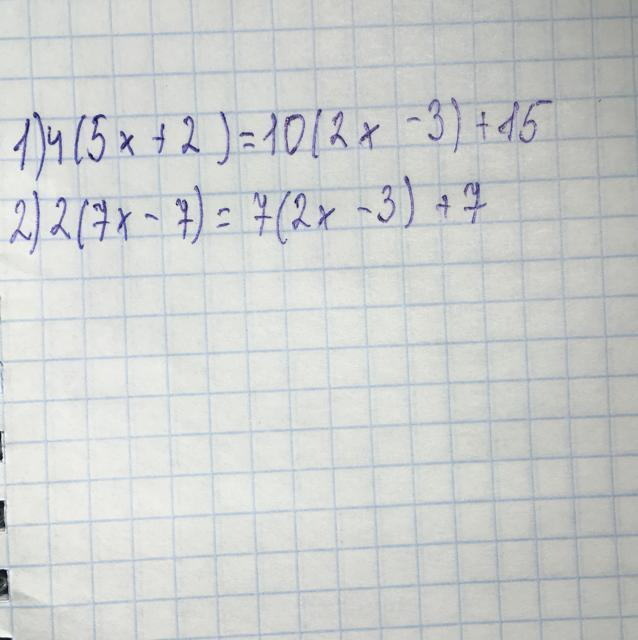 1) 4(5x+2)=10(2x-3)+15
2) 2(7x-7)=7(2x-3)+7